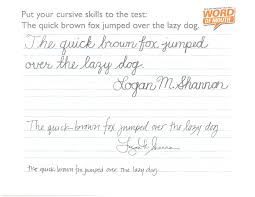 Put your cursive skills to the test:
The quick brown fox jumped over the lazy dog.
WORD
OF MOUTH
The quick brown fox jumped
over the lazy dog.
Logan M. Shannon
The quick brown fox jumped over the lazy dog.
The quick brown fox jumped over the lazy dog.